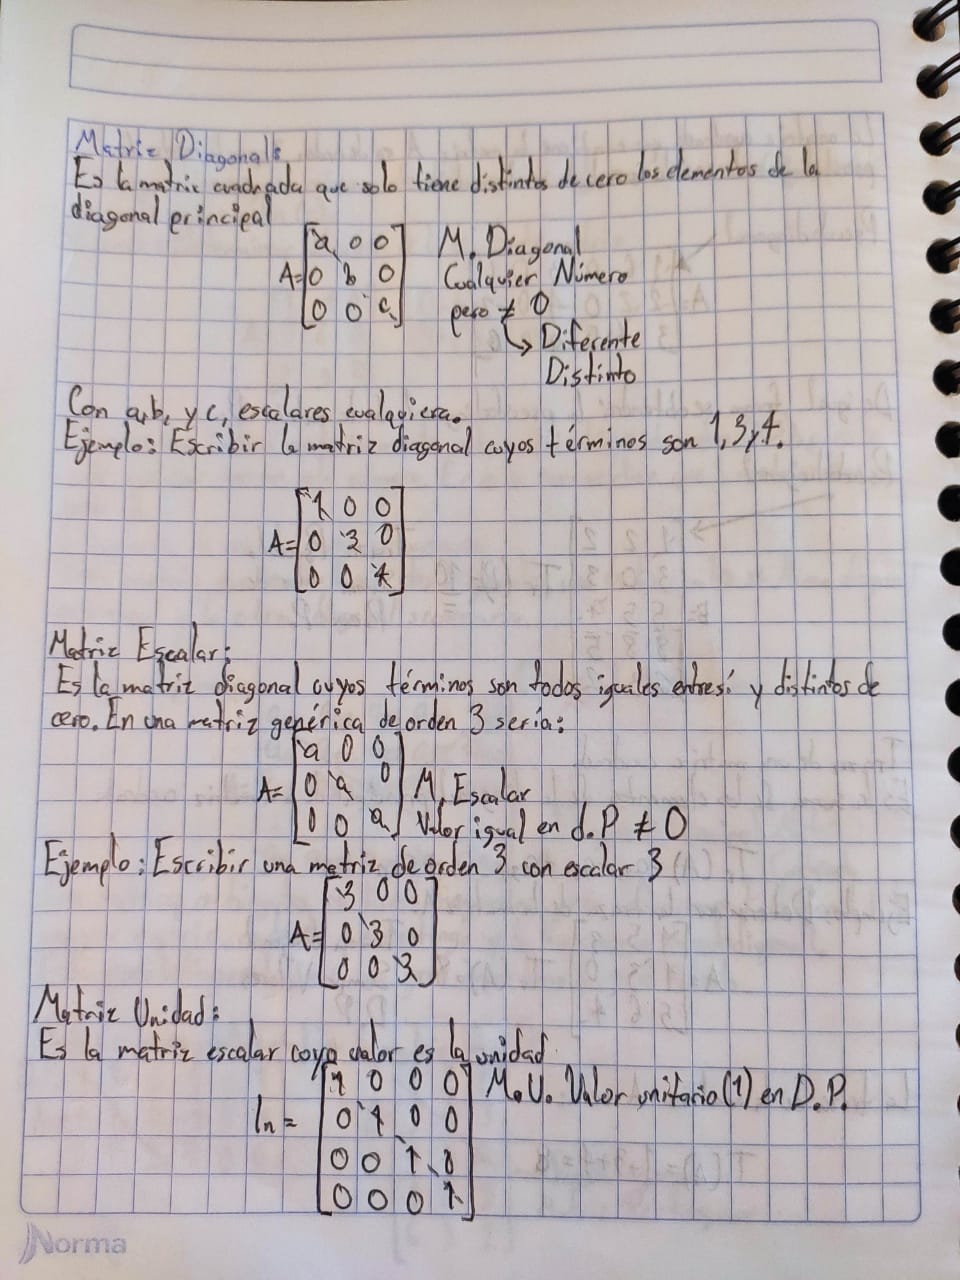 Matriz Diagonal:
Es la matriz cuadrada que solo tiene distintos de cero los elementos de la
diagonal principal
[a 0 0] M. Diagonal
A= [0 b 0] Cualquier Número
[0 0 c] pero ≠ 0
↳ Diferente
Distinto
Con a,b, y c, escalares cualquiera.
Ejemplo: Escribir la matriz diagonal cuyos términos son 1,3,
[1 0 0]
A= [0 3 0]
[0 0
Matriz Escalar:
Es la matriz diagonal cuyos términos son todos iguales entre sí y distintos de
cero. En una matriz genérica de orden 3 sería:
[a 0 0]
A= [0 a 0] M. Escalar
[0 0 a] Valor igual en d.P ≠ 0
Ejemplo: Escribir una matriz de orden 3 con escalar 3
[3 0 0]
A= [0 3 0]
[0 0 3]
Matriz Unidad:
Es la matriz escalar cuyo valor es la unidad.
[1 0 0 0] M.U. Valor unitario (1) en D.P.
In = [0 1 0 0]
[0 0 1 0]
[0 0 0 1]
Norma